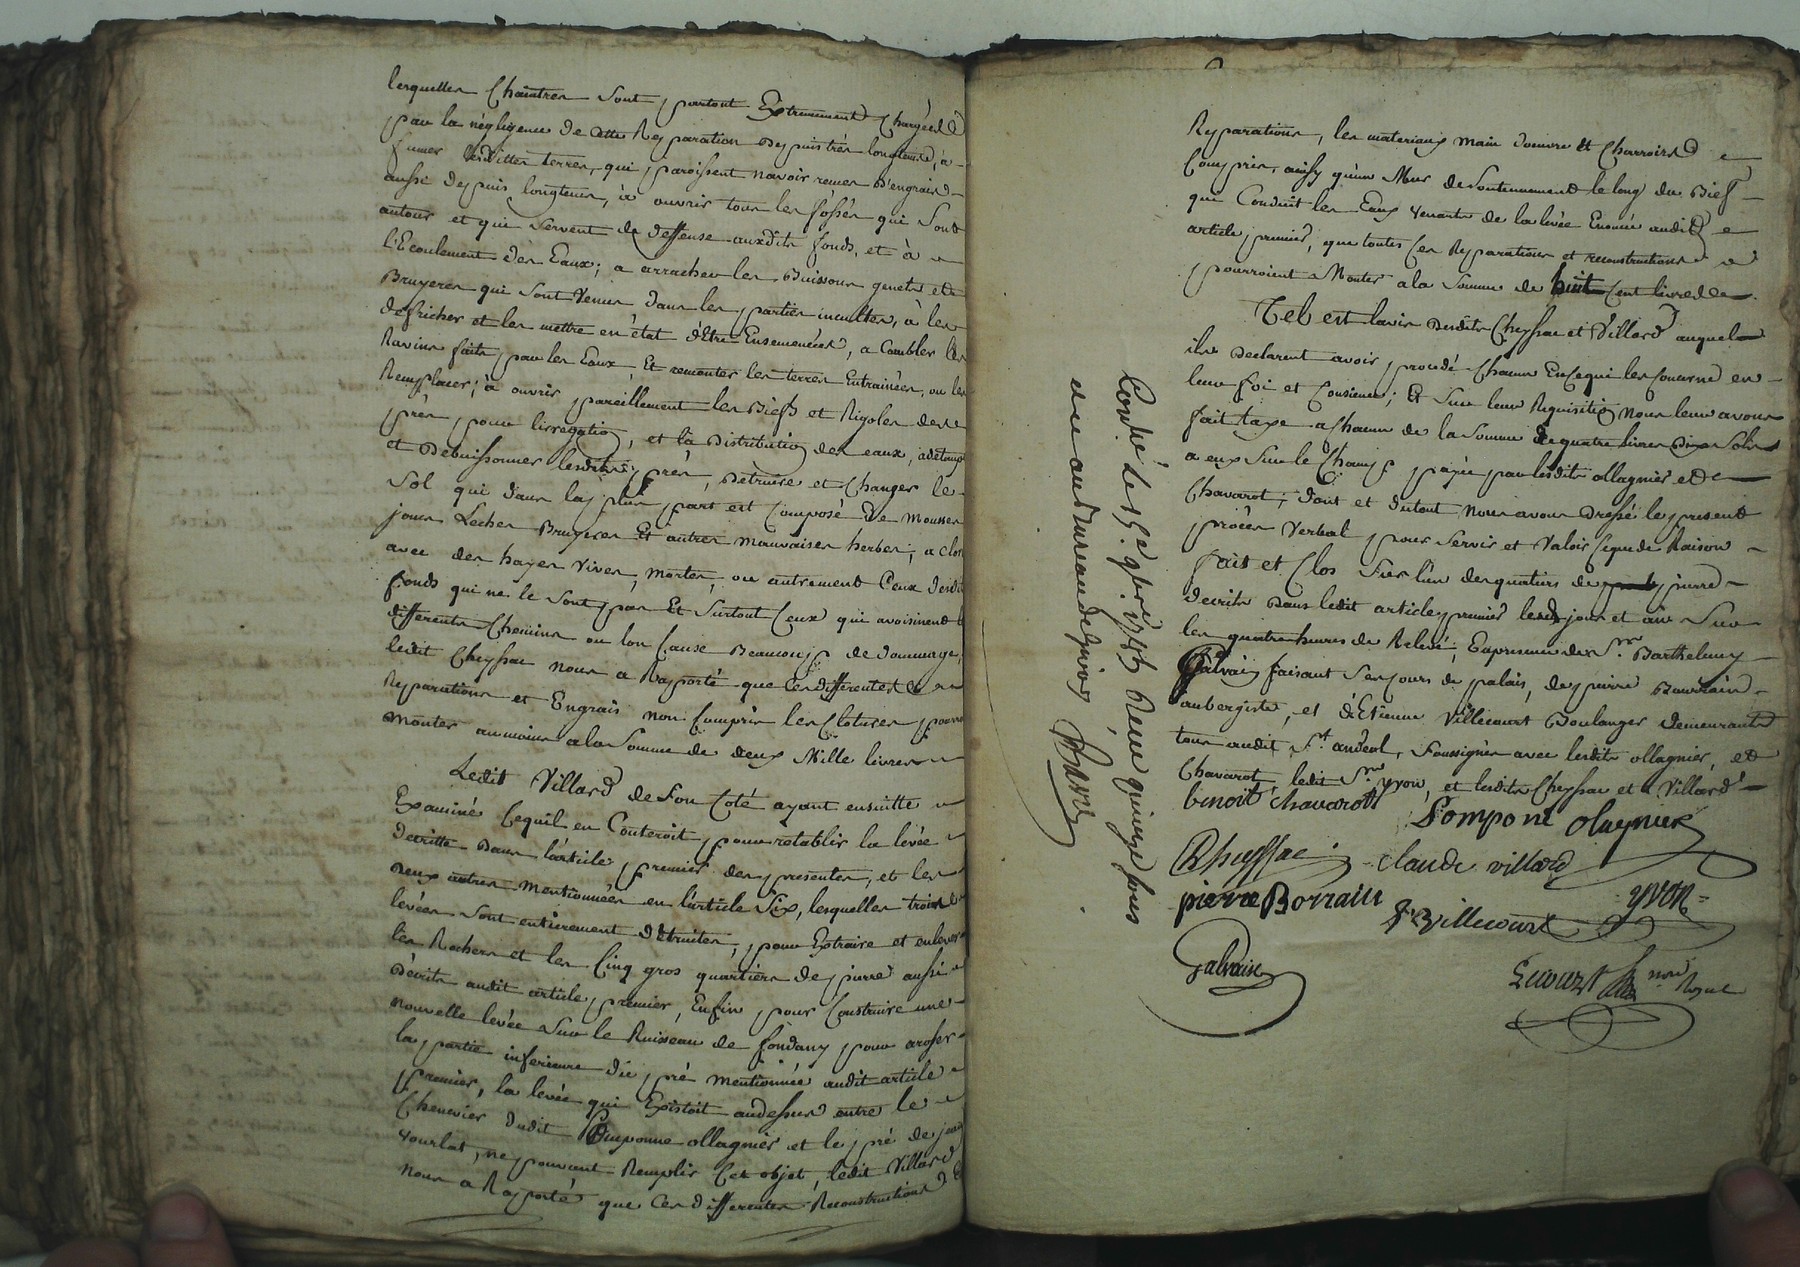 lesquelles Chaintres Sont partout Extremement Chargées
par la négligence de cette Reparation Depuis très longtems, à
fumer lesdittes terres, qui paroissent navoir reçues D'engrais
aussi depuis longtems, à ouvrir tous les fossés qui Sont
autour et qui Servent de deffense auxdits fonds, et à
l'Ecoulement des Eaux; a arracher les Buissons genets et
Bruyeres qui sont Venus dans les parties incultes, à les
defricher et les mettre en état d'Etre Ensemencées, a Combler les
Ravins faits par les Eaux Et remonter les terres Entrainées, ou les
Remplacer; à ouvrir pareillement les Biefs et Rigoles des
prés pour l'irregation, et la Distribution des eaux,
et Debuissonner lesdits prés, Détruire et Changer le
Sol qui dans la plus part est Composé de Mousses
joncs Leches Bruyeres Et autres Mauvaises herbes; a Clore
avec des hayes Vives, Mortes, ou autrement Ceux desdits
fonds qui ne le Sont pas Et Surtout Ceux qui avoisinent
differents Chemins ou lon Cause Beaucoup de dommage,
ledit Cheyssac nous a Raporté que Ces differentes
Reparations et Engrais non Compris les Clotures
Monter au moins a la Somme de deux Mille livres
Ledit Villard de Son Coté ayant ensuitte
Examiné Cequil en Couteroit pour retablir la levée
décritte Dans l'article premier des presentes, et les
Deux autres Mentionnées en l'article Six, lesquelles trois
levées Sont entierement détruites, pour Extraire et enlever
les Rochers et les Cinq gros quartiers de pierre aussi
Décrits audit article premier, Enfin pour Construire une
nouvelle levée Sur le Ruisseau de fondany pour aroser
la partie inferieure du pré mentionnée audit article
premier, la levée qui Existoit audessus entre le
Chenevier dudit Pomponne ollagnier et le pré de
Vourlat, ne pouvant Remplir Cet objet, ledit Villard
nous a Raporté que Ces differentes Reconstructions
Reparations, les materiaux Main doeuvre et Charrois
Compris, ainsy qu'un Mur de Soutennement le long du Bief
qui Conduit les Eaux venants de la levée Enoncée audit
article premier, que toutes Ces Reparations et reconstructions
pourroient Monter a la Somme de huit Cent livres
Tel est lavis desdits Cheyssac et Villard auquel
ils Declarent avoir procédé Chacun En Cequi les Concerne en
leur foi et Consience; Et Sur leur Requisition Nous leur avons
fait taxe a Chacun de la Somme de quatre livres Dix Sols
a eux Sur le Champ payée par lesdits ollagnier et
Chavarot; dont et dutout Nous avons Dressé le present
procès Verbal pour Servir et Valoir Ceque de Raison
fait et Clos Sur l'un des quatiers de pierre
decrits Dans ledit article premier lesdits jour et an Sur
les quatre heures de Relevé, En presence de Sr. Barthelemy
Galvain faisant Ses jours de palais, de pierre Bourrain
aubergiste, et d'Etienne Villecourt Boulanger demeurants
tous audit St. andéol, Soussignés avec lesdits ollagnier, et
Chavarot, ledit Sr. yvon, et lesdits Cheyssac et Villard
benoit chavarot
Pomponne olagnier
Cheyssac
claude villard
pierre Borrain
E. Villecourt
yvon
Galvain
Lecourt
Controlé le 15e. 9bre 1785 Reçu quinze sous